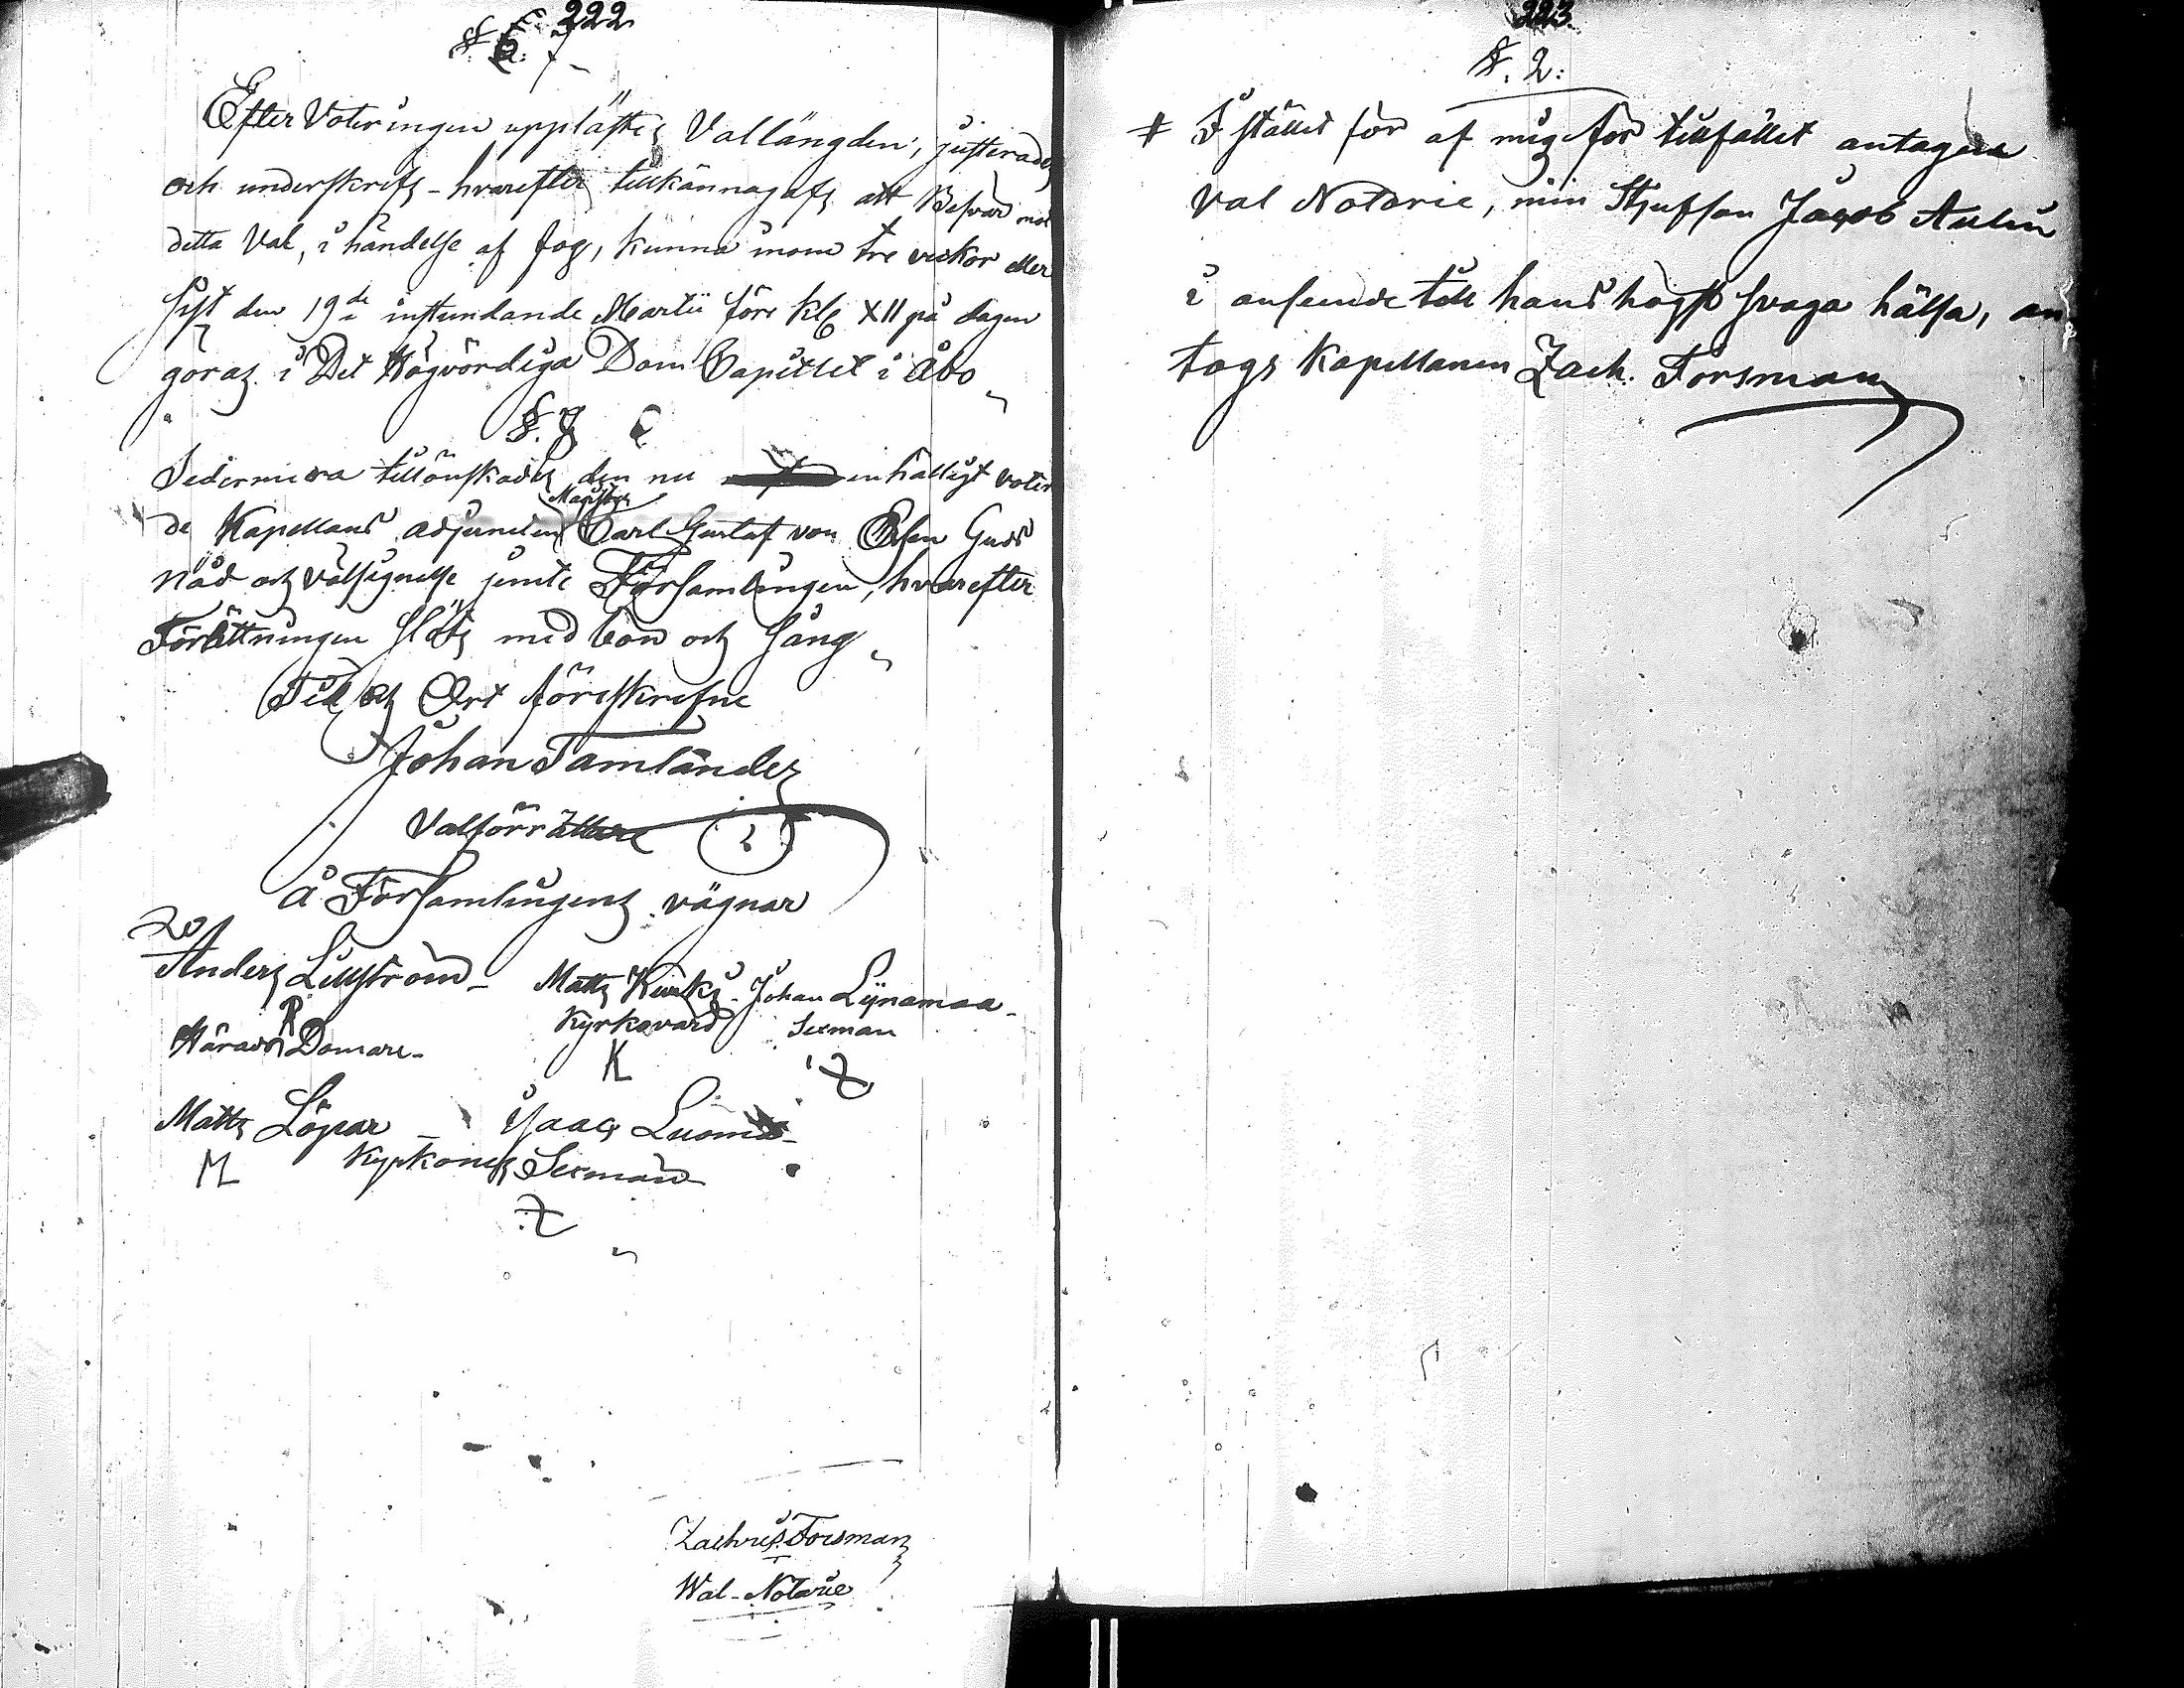 222
§. 6.
Efter Voteringen upplästes Vallängden, justerades
och underskrefs - hvarefter tillkännagafs att Besvär mot
detta Val, i händelse af fog, kunna inom tre veckor eller
sist den 19de instundande Martii före kl. XII på dagen
göras i Det Högvördiga Dom Capitlet i Åbo
§. 7
Sedermera tillönskades den nu enhälligt votera
de Kapellans adjuncten Magister Carl Gustaf von Essen Guds
nåd och välsignelse jemte Församlingen, hvarefter
Förrättningen slöts med bön och sång
Tid och Ort föreskrefne
Johan Tamlander
Valförrättare
å Församlingens vägnar
Anders Lillström - Matts Kurki - Johan Lynamaa -
Härads Domare - Kyrkovärd Sexman
R K
Matts Löpar - Isaac Luoma -
M Sexman
Zachris Forsman
Wal-Notarie
223.
§. 2:
# I stället för af mig för tillfället antagna
Val Notarie, min Stjufson Jacob Aulin
i anseende till hans högst svaga hälsa, an
togs Kapellanen Zach. Forsman